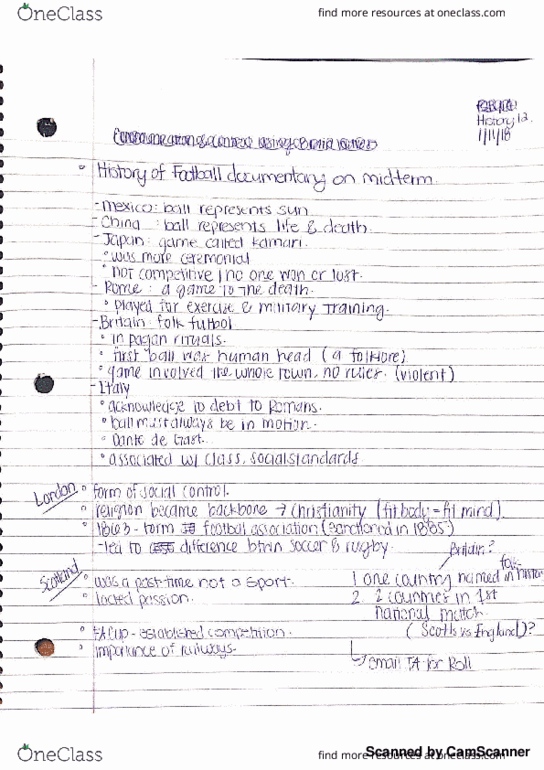 OneClass
find more resources at oneclass.com
History 12
1/11/18
◦ History of Football documentary on midterm.
- Mexico: ball represents sun
- China : ball represents life & death.
- Japan: game called kamari.
◦ was more ceremonial
◦ not competitive | no one won or lost.
- Rome : a game to the death.
◦ played for exercise & military training.
- Britain: folk futbol
◦ in pagan rituals.
◦ first ball was human head (a folklore)
◦ game involved the whole town, no rules. (violent)
- Italy
◦ acknowledge to debt to Romans.
◦ ball must always be in motion.
◦ Dante de
◦ associated w/ class, social standards
London ◦ form of social control.
◦ religion became backbone → Christianity (fit body = fit mind)
◦ 1863 - form football association (sanctioned in 1885)
- led to difference btwn soccer & rugby.
Britain?
Scotland ◦ was a past-time not a sport.
◦ lacked passion.
◦ FA Cup - established competition.
◦ importance of railways.
1. one country named in
2. 2 countries in 1st
national match
(Scotts vs England)?
→ email TA for Roll
OneClass
find more resources at oneclass.com
Scanned by CamScanner